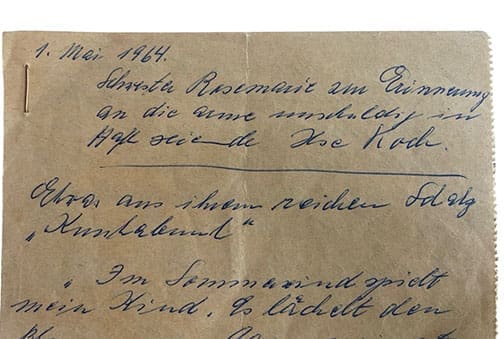 1. Mai 1964.
Schwester Rosemarie zur Erinnerung
an die arme unschuldig in
Haft seiende Ilse Koch.
Etwas aus ihrem reichen Schatz
„Kunterbunt"
„Im Sommerwind spielt
mein Kind. Es lächelt den